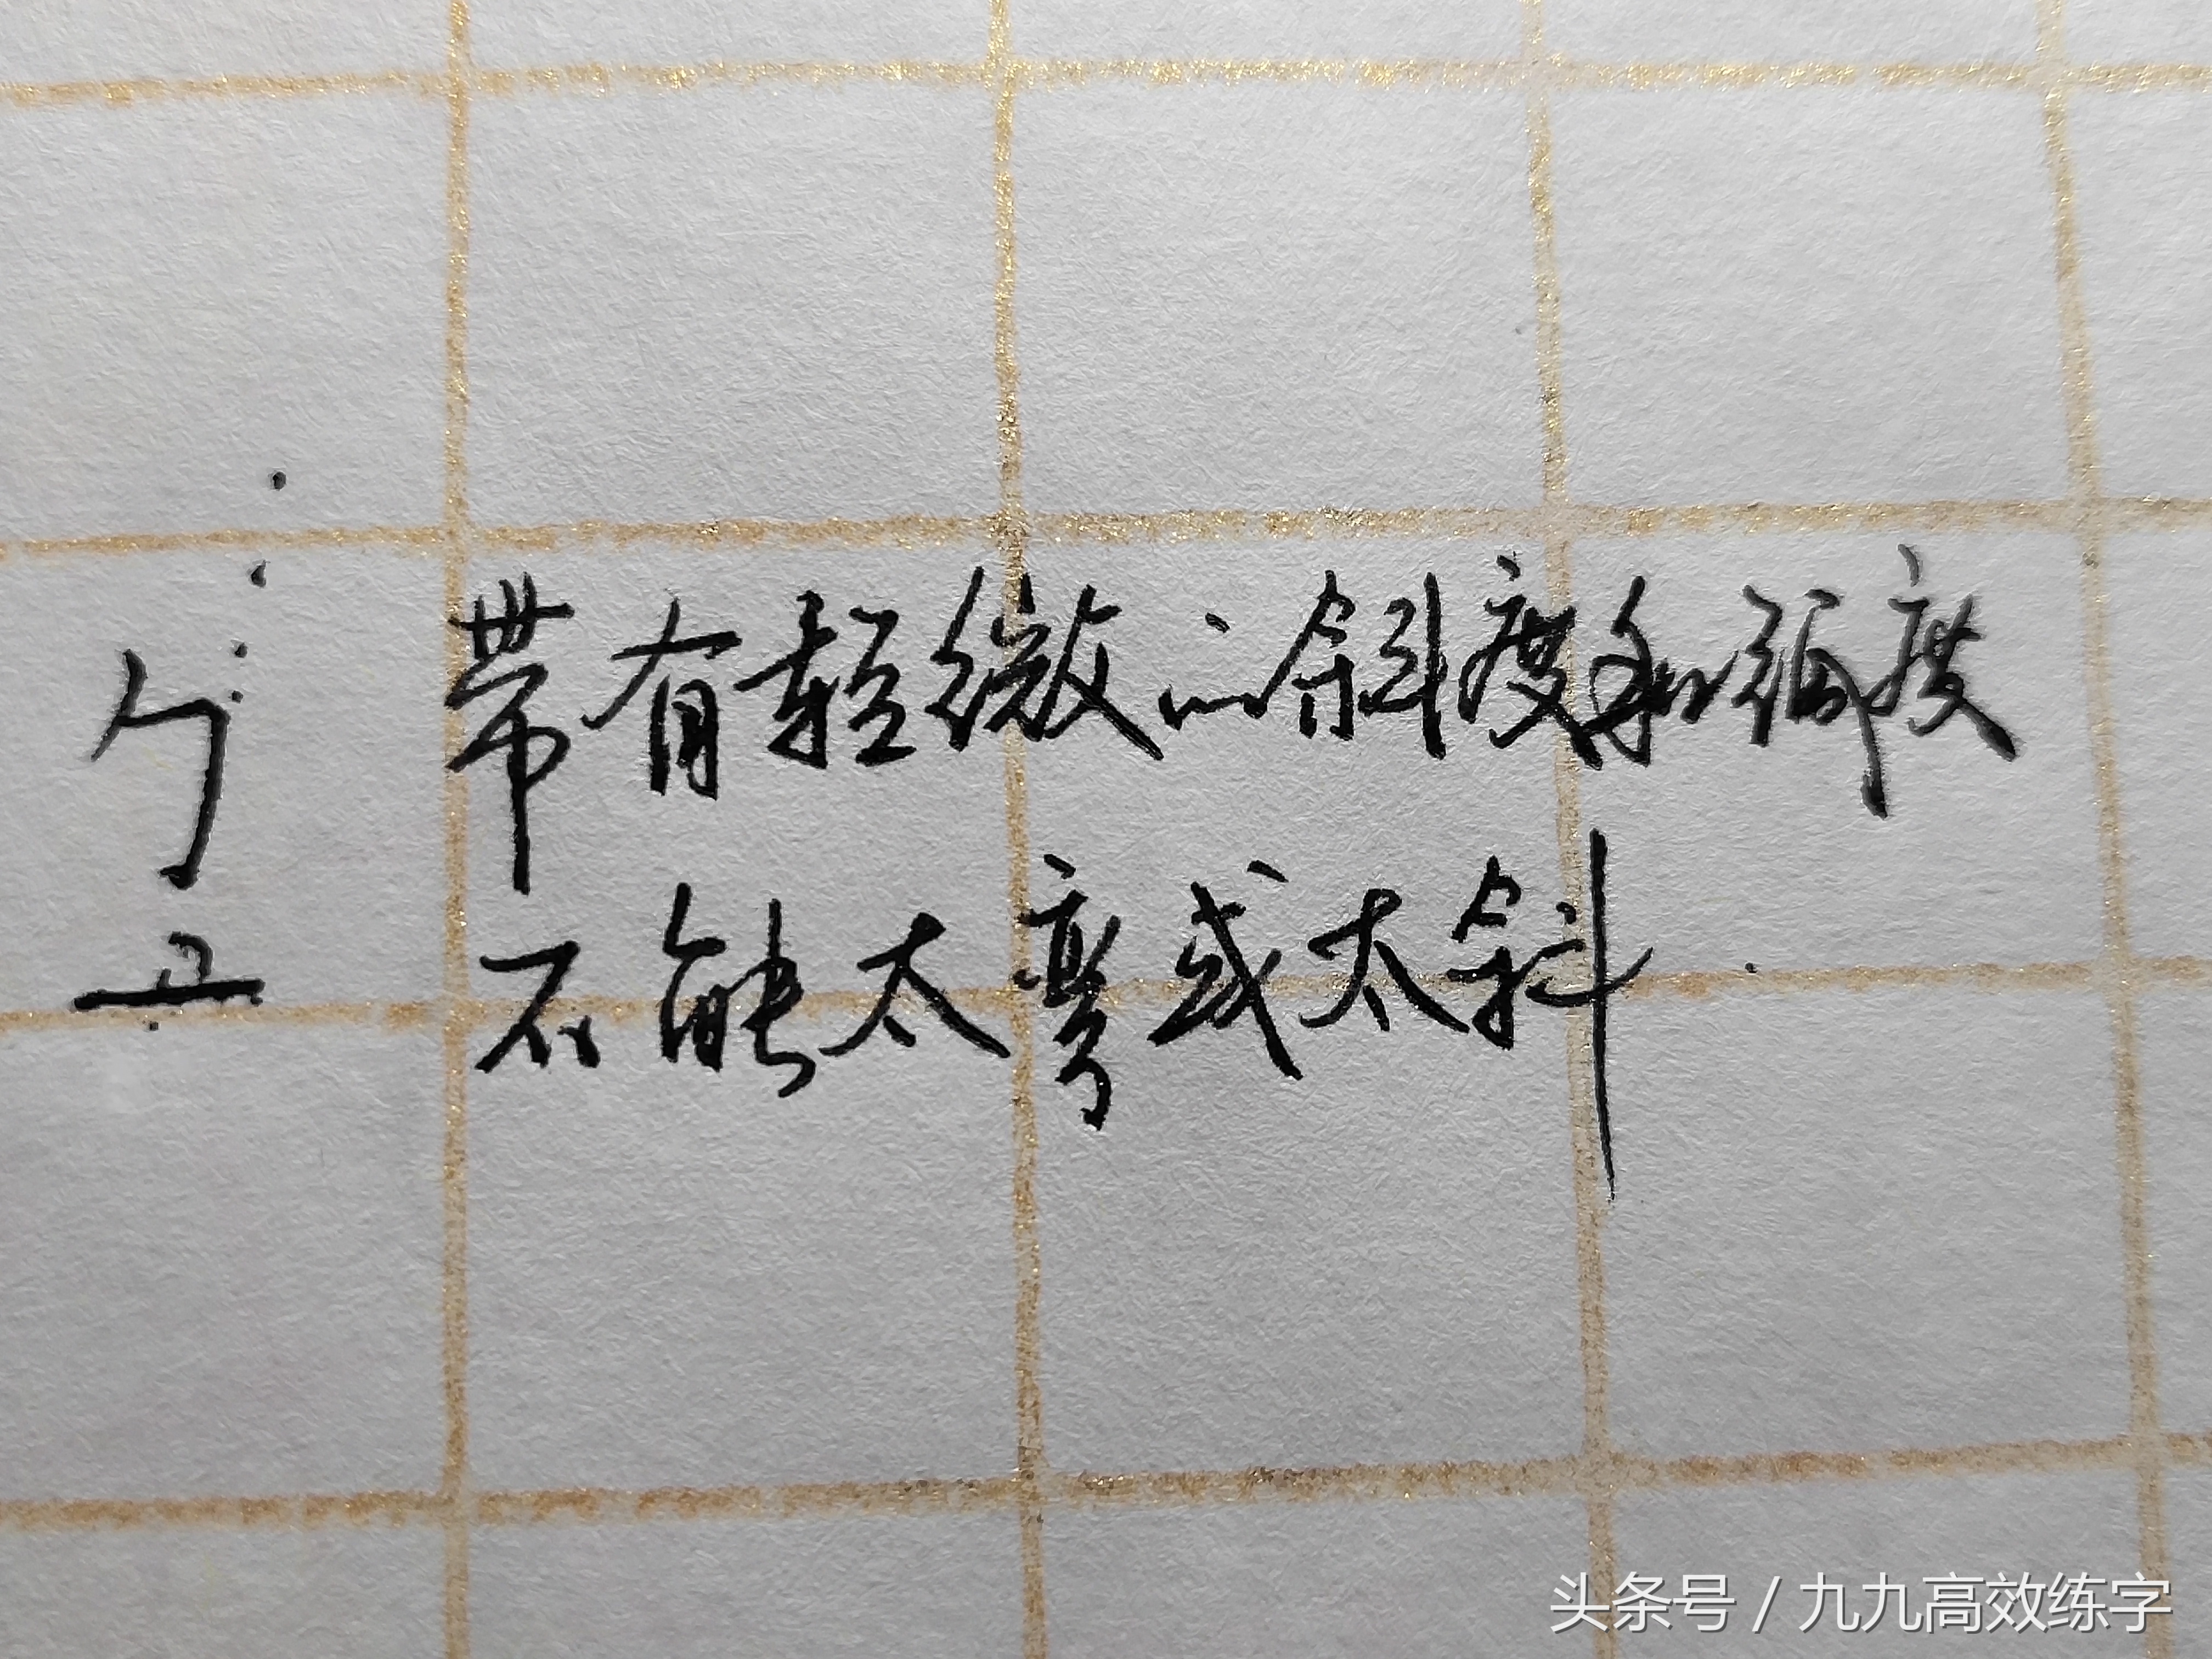 带有轻微的斜度和弧度
不能太弯或太斜
头条号 / 九九高效练字